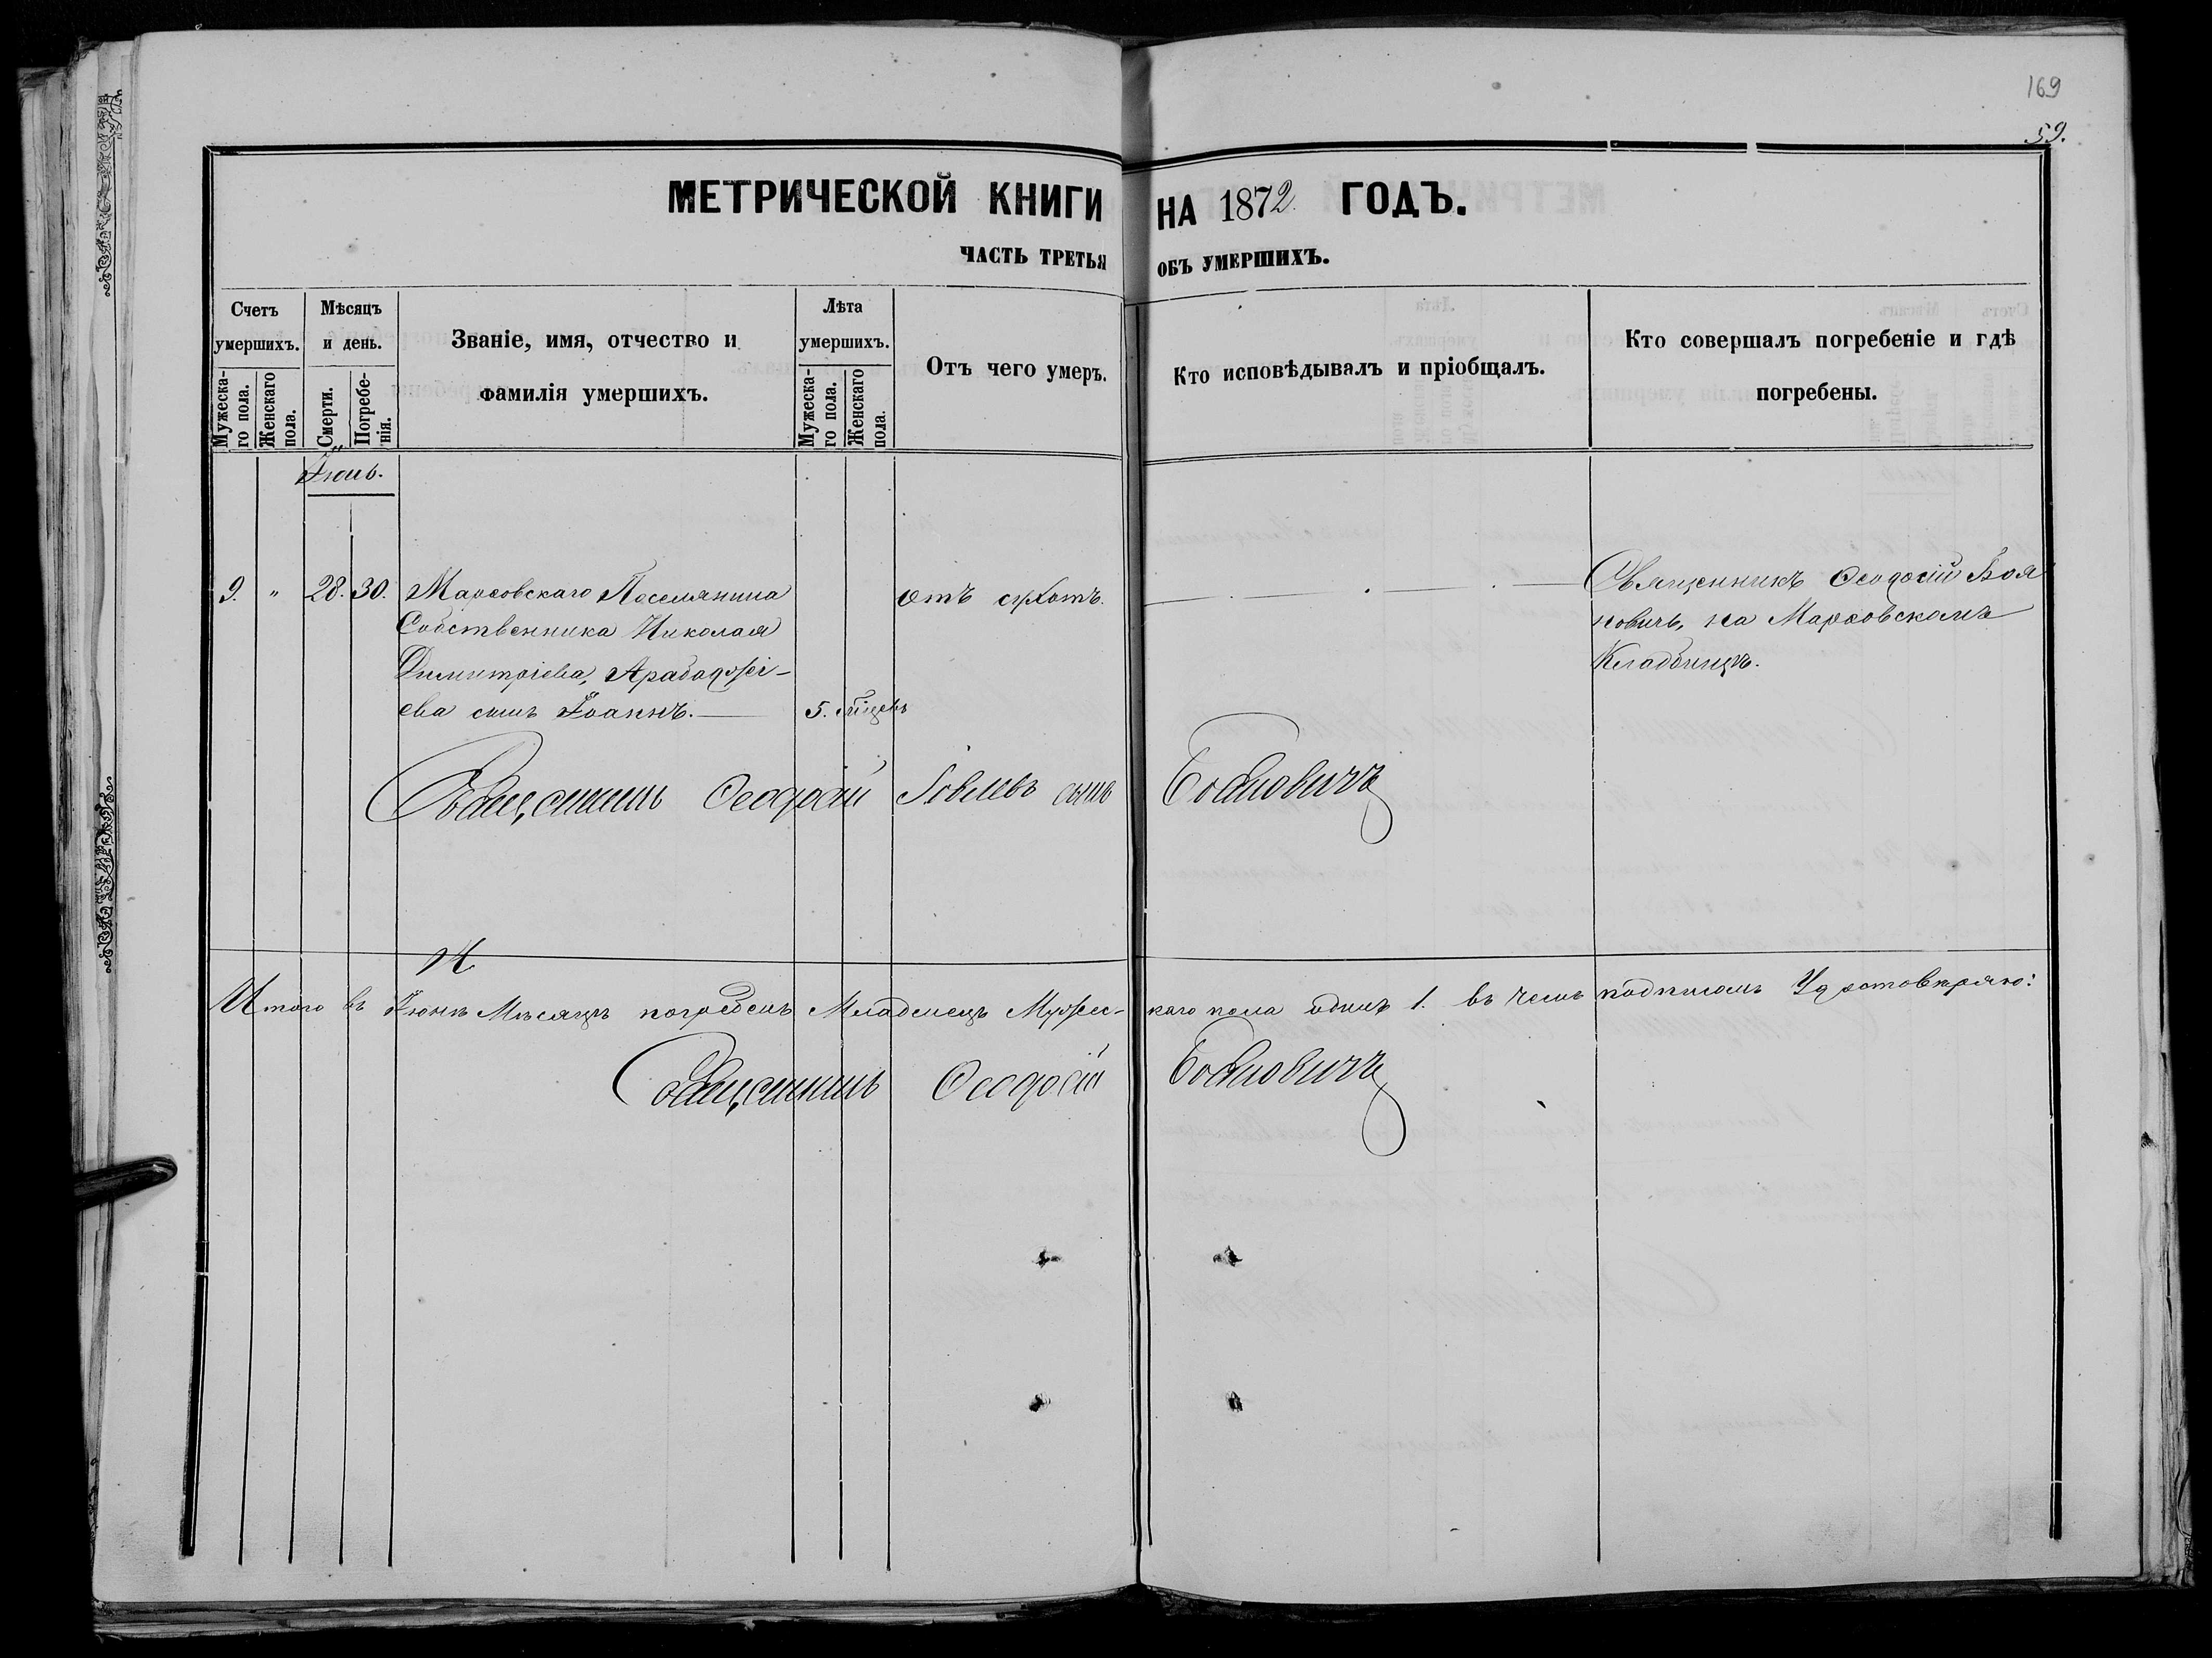 169
59.
МЕТРИЧЕСКОЙ КНИГИ НА 1872 ГОДЪ.
ЧАСТЬ ТРЕТЬЯ ОБЪ УМЕРШИХЪ.
Счетъ умершихъ.
Мужеска-го пола.
Женскаго пола.
Мѣсяцъ и день.
Смерти.
Погребе-нія.
Званіе, имя, отчество и
фамилія умершихъ.
Лѣта умершихъ.
Мужеска-го пола.
Женскаго пола.
Отъ чего умеръ.
Кто исповѣдывалъ и пріобщалъ.
Кто совершалъ погребеніе и гдѣ
погребены.
Іюнь.
9. " 28. 30. Поселянина
Собственника Николая
Димитріева, Арабаджі-
ева сынъ Іоаннъ. 5. мѣсяцевъ
отъ сухотъ.
Священникъ Ѳеодосій Боя
новичь, на
Кладбищѣ.
Священникъ Ѳеодосій сынъ Бояновичъ
Итого въ Іюнѣ Мѣсяцѣ погребенъ Младенецъ Мужес-каго пола одинъ 1. въ чемъ подписомъ Удостовѣряю:
Священникъ Ѳеодосій Бояновичъ